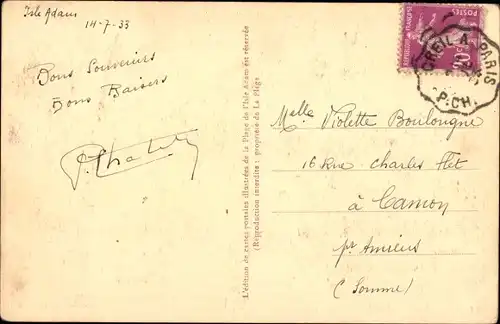 Isle Adam
14-7-33
Bons Souvenirs
Bons Baisers
L'édition de cartes postales illustrées de la Plage de l'Isle Adam est réservée
(Reproduction interdite : propriété de La Plage)
POSTES
REPUBLIQUE FRANÇAISE
20c
CREIL A PARIS
P.CH.
Melle Violette Boulongne
16 Rue Charles Flet
à Camon
pr Amiens
(Somme)